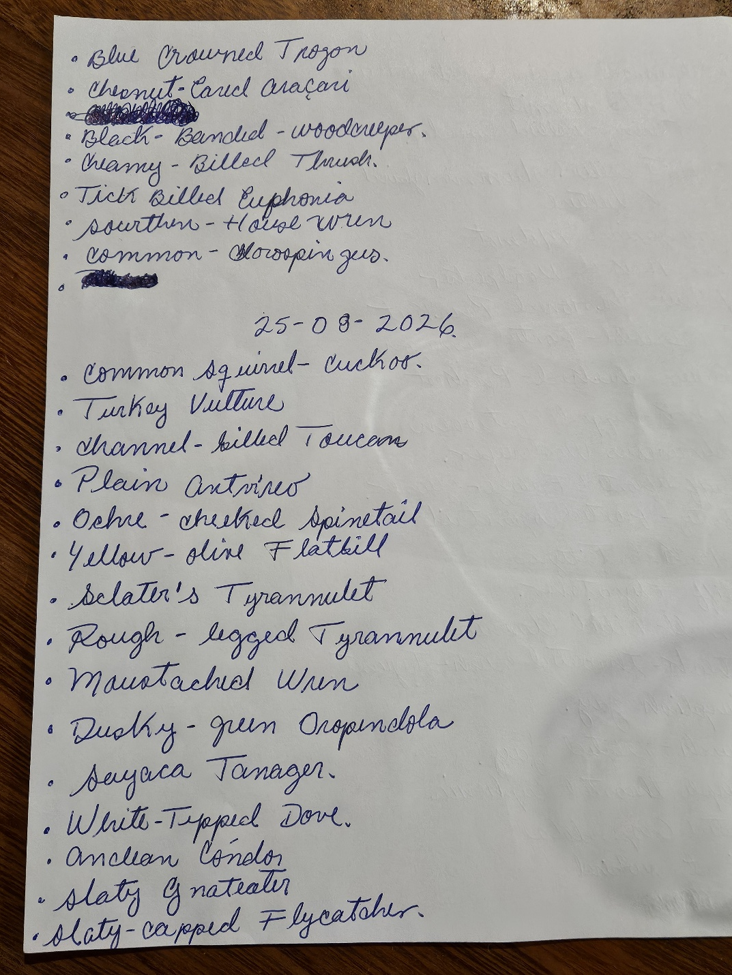 • Blue Crowned Trogon
• Chesnut-Eared Araçari
•
• Black-Banded-woodcreeper.
• Creamy-Billed Thrush.
• Tick Billed Euphonia
• sourthen-House wren
• common-Chlorospingus.
•
25-08-2026.
• common squirrel-cuckoo.
• Turkey Vulture
• channel-billed Toucan
• Plain Antvireo
• Ochre-cheeked Spinetail
• Yellow-olive Flatbill
• Sclater's Tyrannulet
• Rough-legged Tyrannulet
• Moustached Wren
• Dusky-green Oropendola
• Sayaca Tanager.
• White-Tipped Dove.
• Andean Cóndor
• Slaty Gnateater
• slaty-capped Flycatcher.